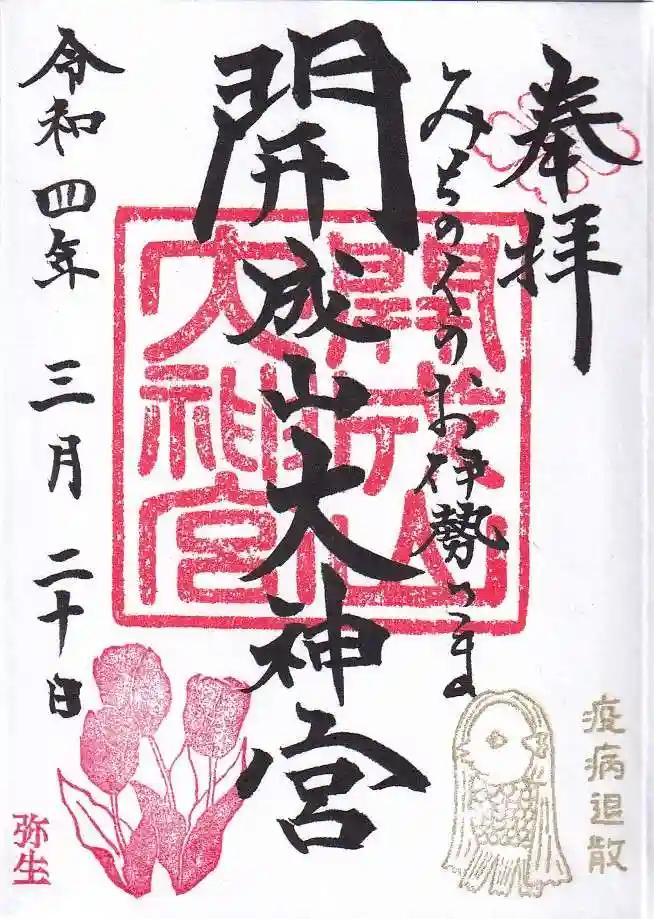 奉拝
みちのくのお伊勢さま
開成山大神宮
令和四年 三月 二十日
開成山
大神宮
疫病退散
弥生